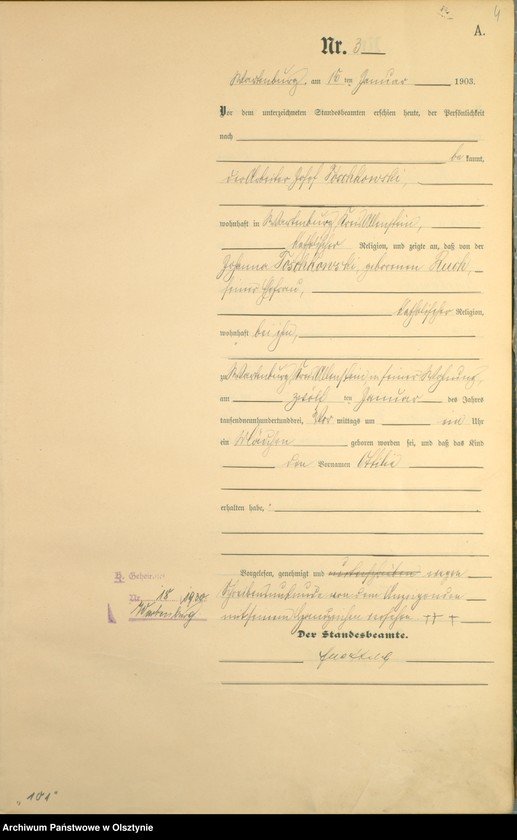 4
A.
Nr. 3
Wartenburg, am 15 ten Januar 1903.
Vor dem unterzeichneten Standesbeamten erschien heute, der Persönlichkeit
nach
be kannt,
der Arbeiter Josef Poschkowski,
wohnhaft in Wartenburg Kreis Allenstein,
katholischer Religion, und zeigte an, daß von der
Johanna Poschkowski, geborenen
seiner Ehefrau,
katholischer Religion,
wohnhaft bei ihm,
zu Wartenburg Kreis Allenstein in seiner Wohnung
am zwölf ten Januar des Jahres
tausendneunhundertunddrei, Vor mittags um Uhr
ein Mädchen geboren worden sei, und daß das Kind
den Vornamen Ottilie
erhalten habe.
Vorgelesen, genehmigt und unterschrieben wegen
Schreibensunkunde von dem Anzeigenden
mit seinem Handzeichen versehen +++
Der Standesbeamte.
Nr. 18 1920
Wartenburg
"101"
Archiwum Państwowe w Olsztynie